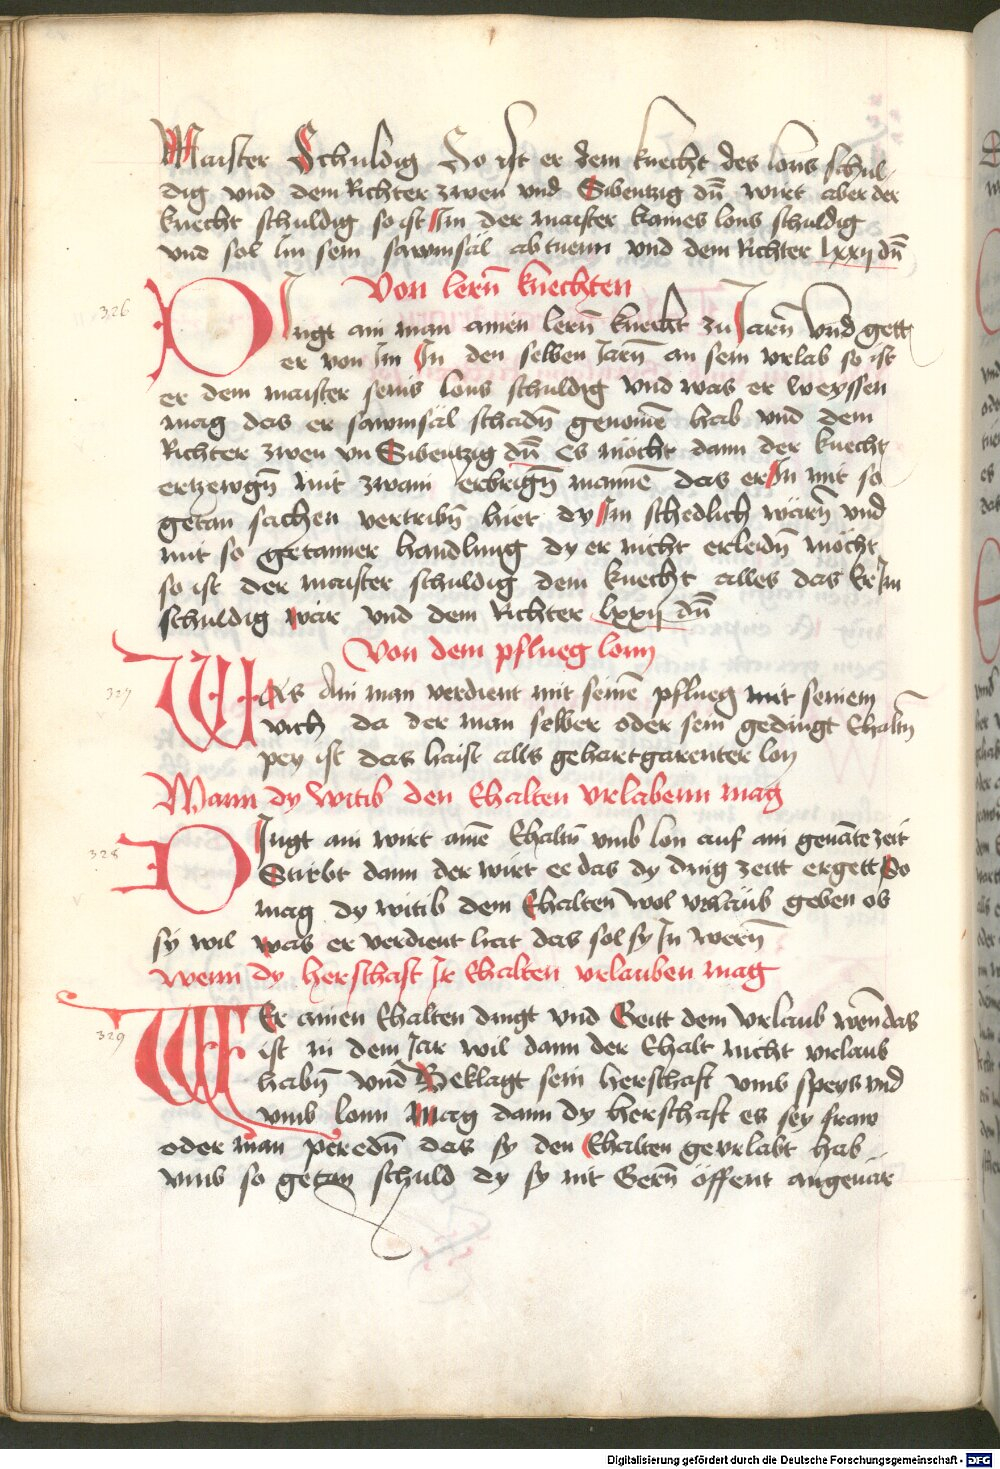 Maister Schuldig So ist er dem knecht des lons schul-
dig vnd dem Richter zwen vnd Sibentzig dn̄ wirt aber der
knecht schuldig so ist Im der maister kaines lons schuldig
vnd sol Im sein sawmsäl abtuenn vnd dem Richter lxxij dn̄
Von lern̄ knechten
326
Dingt ain man ainen lern̄ knecht zu Jarn̄ vnd gett
er von Im In den selben Jarn̄ an sein vrlab so ist
er dem maister seins lons schuldig vnd was er weyssen
mag das er sawmsäl schadn̄ genomē hab vnd dem
Richter zwen vn Sibentzig dn̄ es möcht dann der knecht
ertzewgn̄ mit zwain erbrign̄ mannē das er In mit so
getan sachen vertribn̄ hiet dy Im schedlich wärn̄ vnd
mit so getanner handlung dy er nicht erleidn̄ möcht
so ist der maister schuldig dem knecht alles das Er Im
schuldig wär vnd dem Richter lxxij dn̄
Von dem pflueg lonn
327
Was Ain man verdient mit seinē pflueg mit seinem
vich da der man selber oder sein gedingt Ehaltn̄
pey ist das haist alls gehartgarenter lon
Wann dy witib den Ehalten vrlabenn mag
328
Dingt ain wirt ainē Ehaltn̄ vmb lon auf ain genāte zeit
Stirbt dann der wirt ee das dy ding zeitt ergett So
mag dy witib dem Ehalten wol vrlaub geben ob
sy wil was er verdient hat das sol sy In wern̄
wenn dy herschaft Ir Ehalten vrlauben mag
329
WEr ainen Ehalten dingt vnd Geitt dem vrlaub wēn das
ist in dem Jar wil dann der Ehalt nicht vrlaub
habn̄ vnd Beklagt sein herschaft vmb speys vnd
vmb lonn Mag dann dy herschaft es sey fraw
oder man peredn̄ das sy den Ehalten gevrlabt hab
vmb so getan schuld dy sy nit Gern̄ öffent angeuär
Digitalisierung gefördert durch die Deutsche Forschungsgemeinschaft - DFG